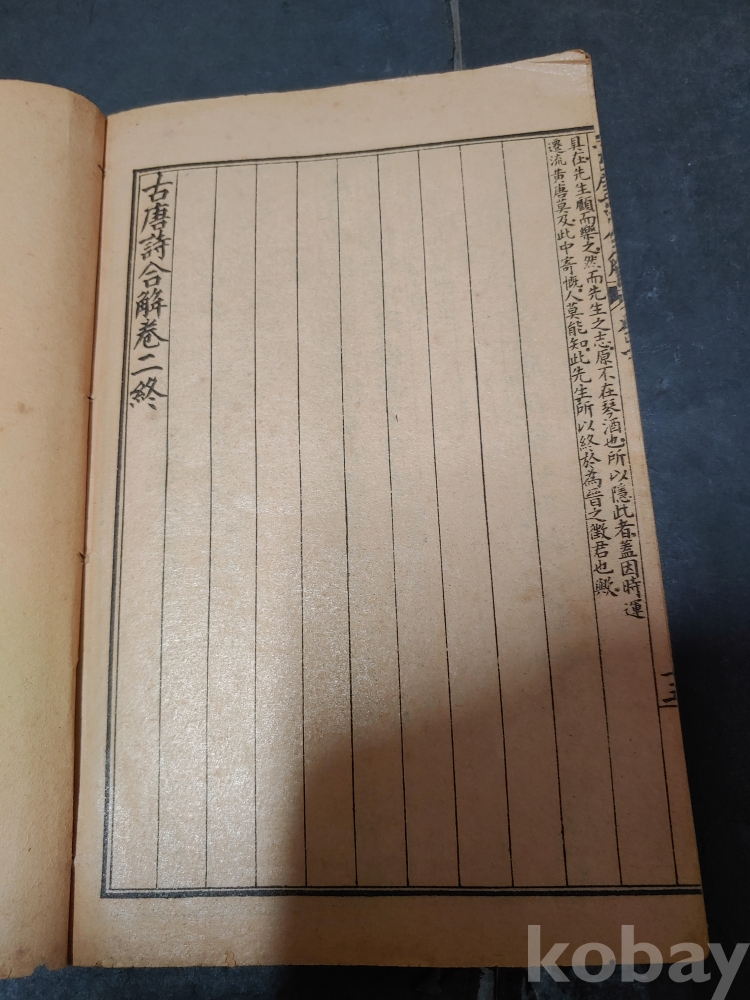 具在先生顧而樂之然而先生之志原不在琴酒也所以隱此者蓋因時運
遷流黃唐莫及此中寄慨人莫能知此先生所以終於為晉之徵君也歟
古唐詩合解卷二終
kobay